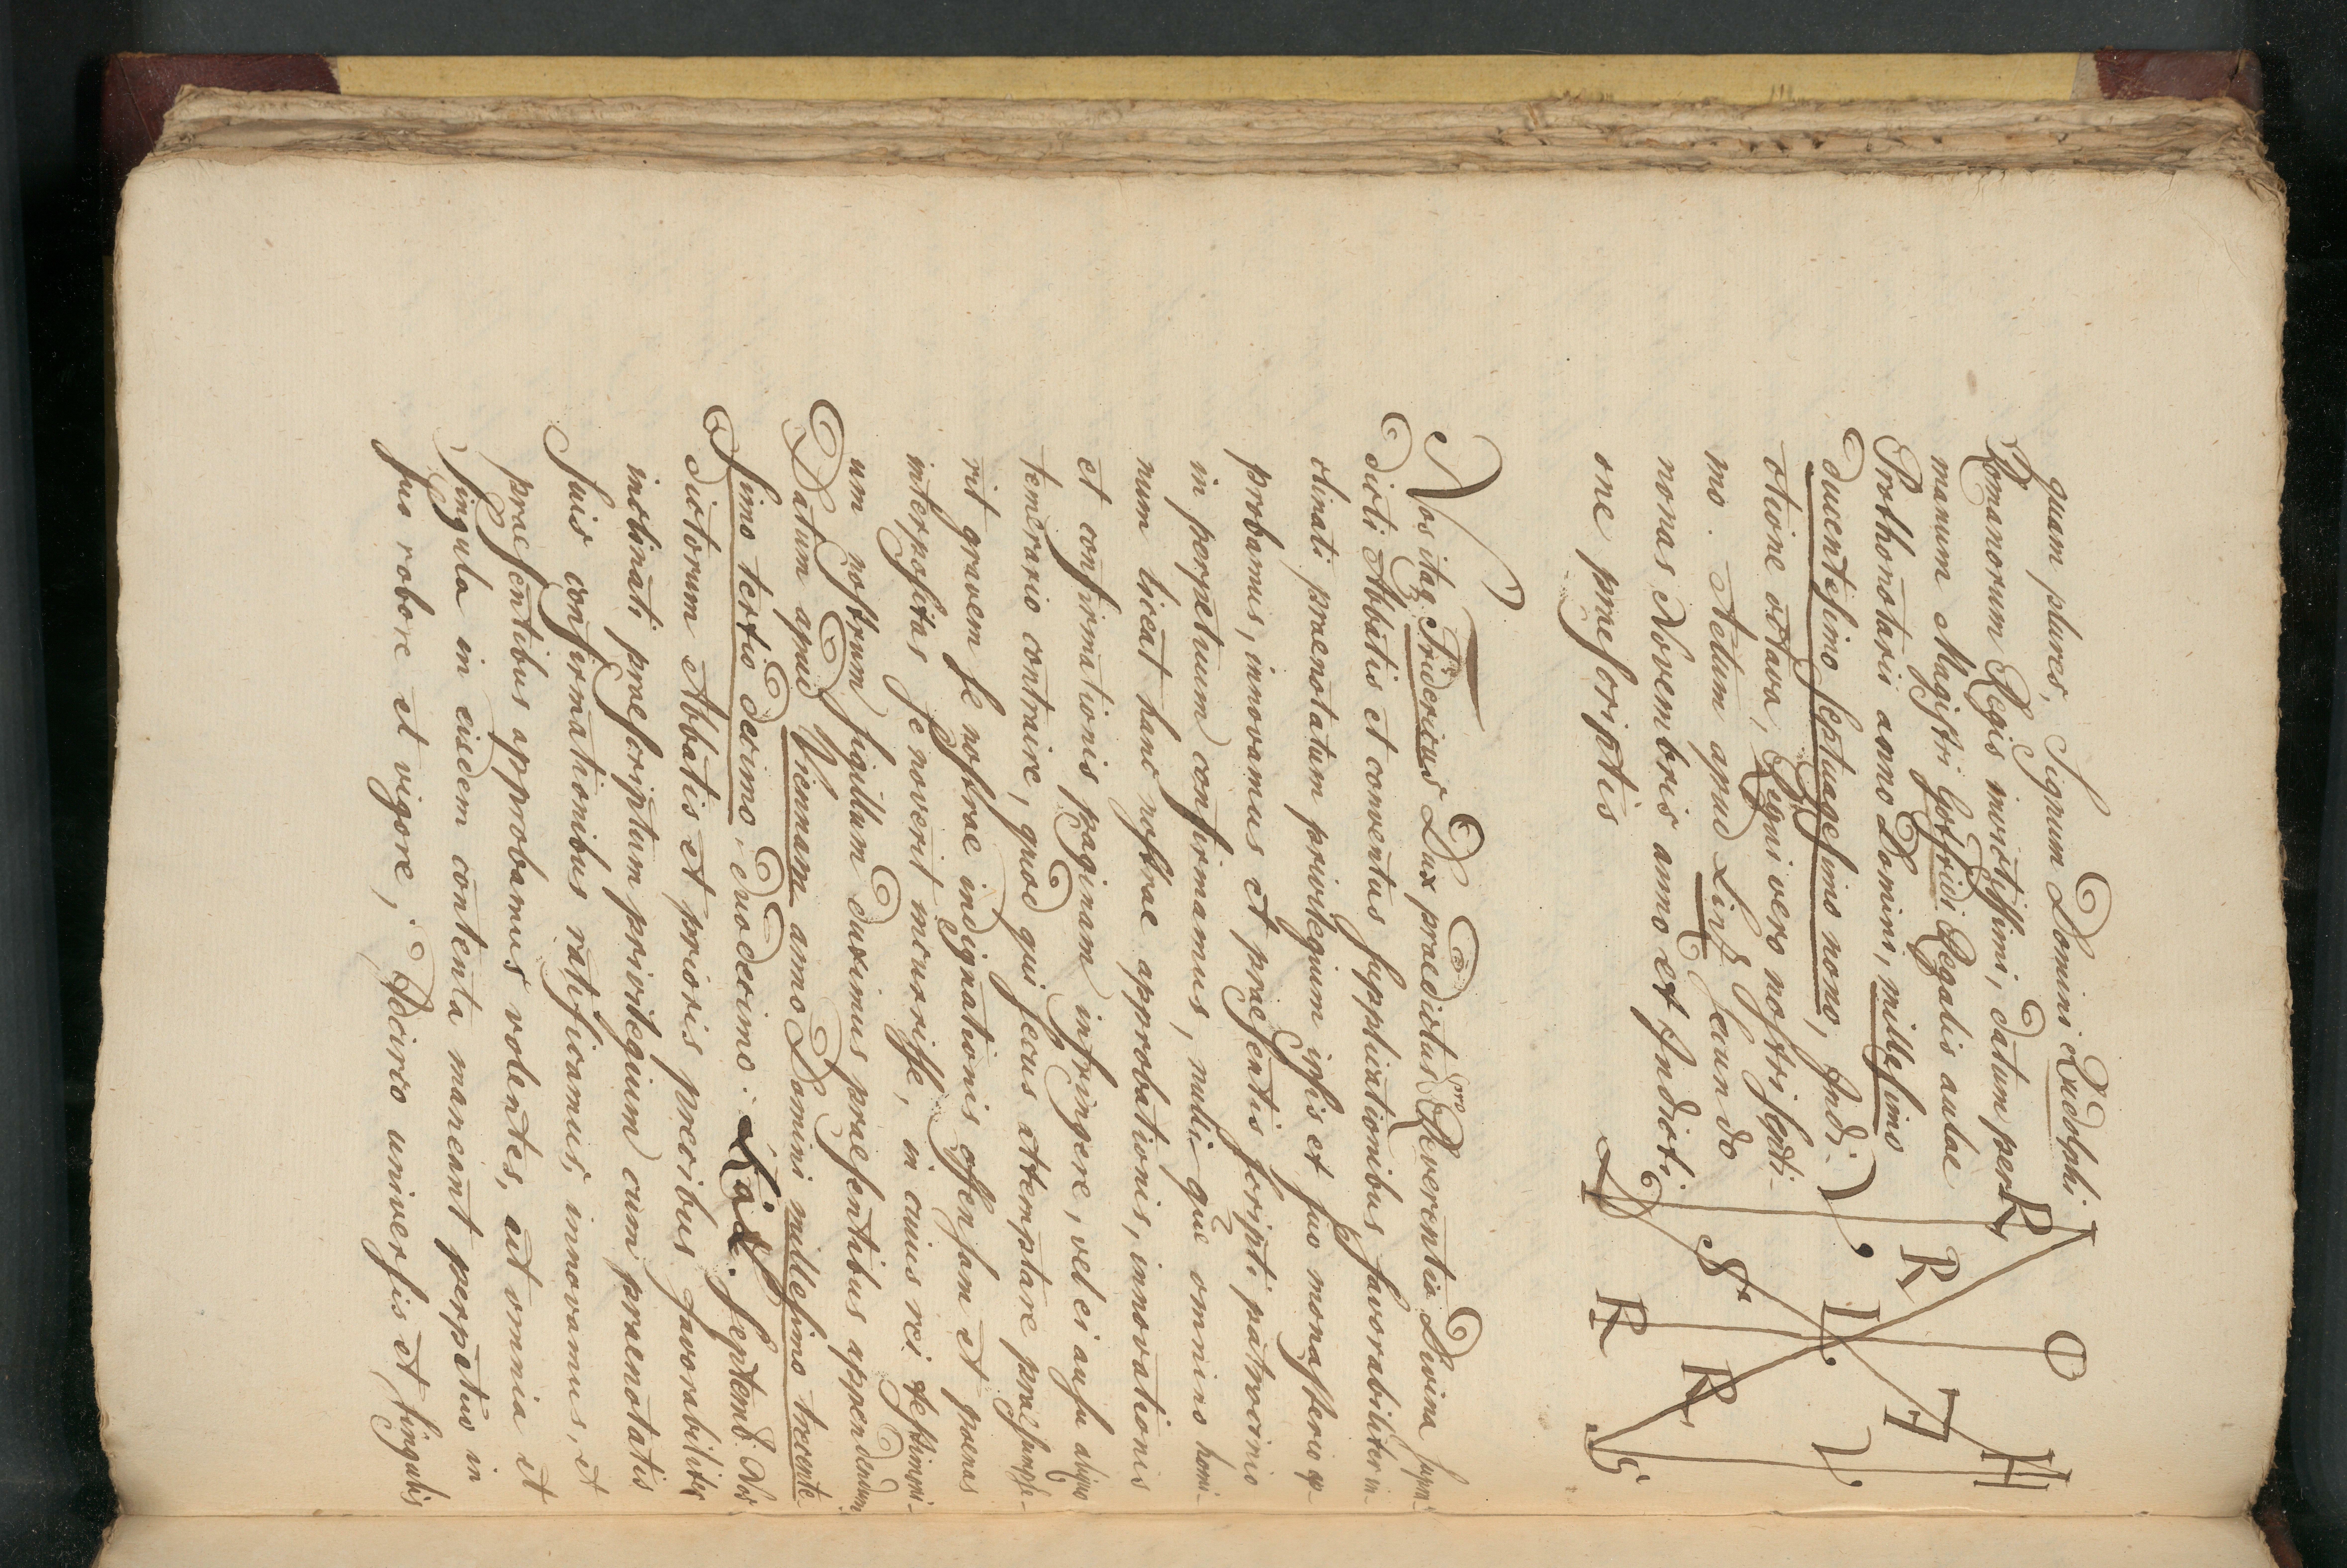 quam plures, Signum Domini Rudolphi
Romanorum Regis invictissimi, datum per
manum Magistri Gotfridi Regalis aulae
Prothonotarii anno Domini, millesimo
ducentesimo septuagesimo nono, Indi-
ctione octava, Regni vero nostri septi-
mo. Actum apud Lintz secundo
nonas Novembris anno et Indicti-
one praescriptis
Nos itaq Fridericus Dux praedictus pro Reverentia Divina supra-
dicti Abbatis et conventus supplicationibus favorabiliter in-
clinati praenotatum privilegium ipsis et suo monasterio ap-
probamus, innovamus et praesentis scripti patrocinio
in perpetuum confirmamus, nulli que omnino homi-
num liceat hanc nostrae approbationis, innovationis
et confirmationis paginam infringere, vel ei ausu aliquo
temerario contraire, quod qui secus attemptare praesumpse-
rit gravem se nostrae indignationis offensam et poenas
interpositas se noverit incurrisse, in cuius rei testimoni-
um nostrum sigillum duximus praesentibus appendendum
Datum apud Viennam anno Domini millesimo trecente-
simo tertio decimo, duodecimo Kal. Septemb. Nos
dictorum Abbatis et prioris precibus favorabiliter
inclinati praescriptum privilegium cum praenotatis
suis confirmationibus ratificamus, innovamus, et
praesentibus approbamus volentes, ut omnia et
singula in eisdem contenta maneant perpetuo in
suo robore et vigore, Idcirco universis et singulis